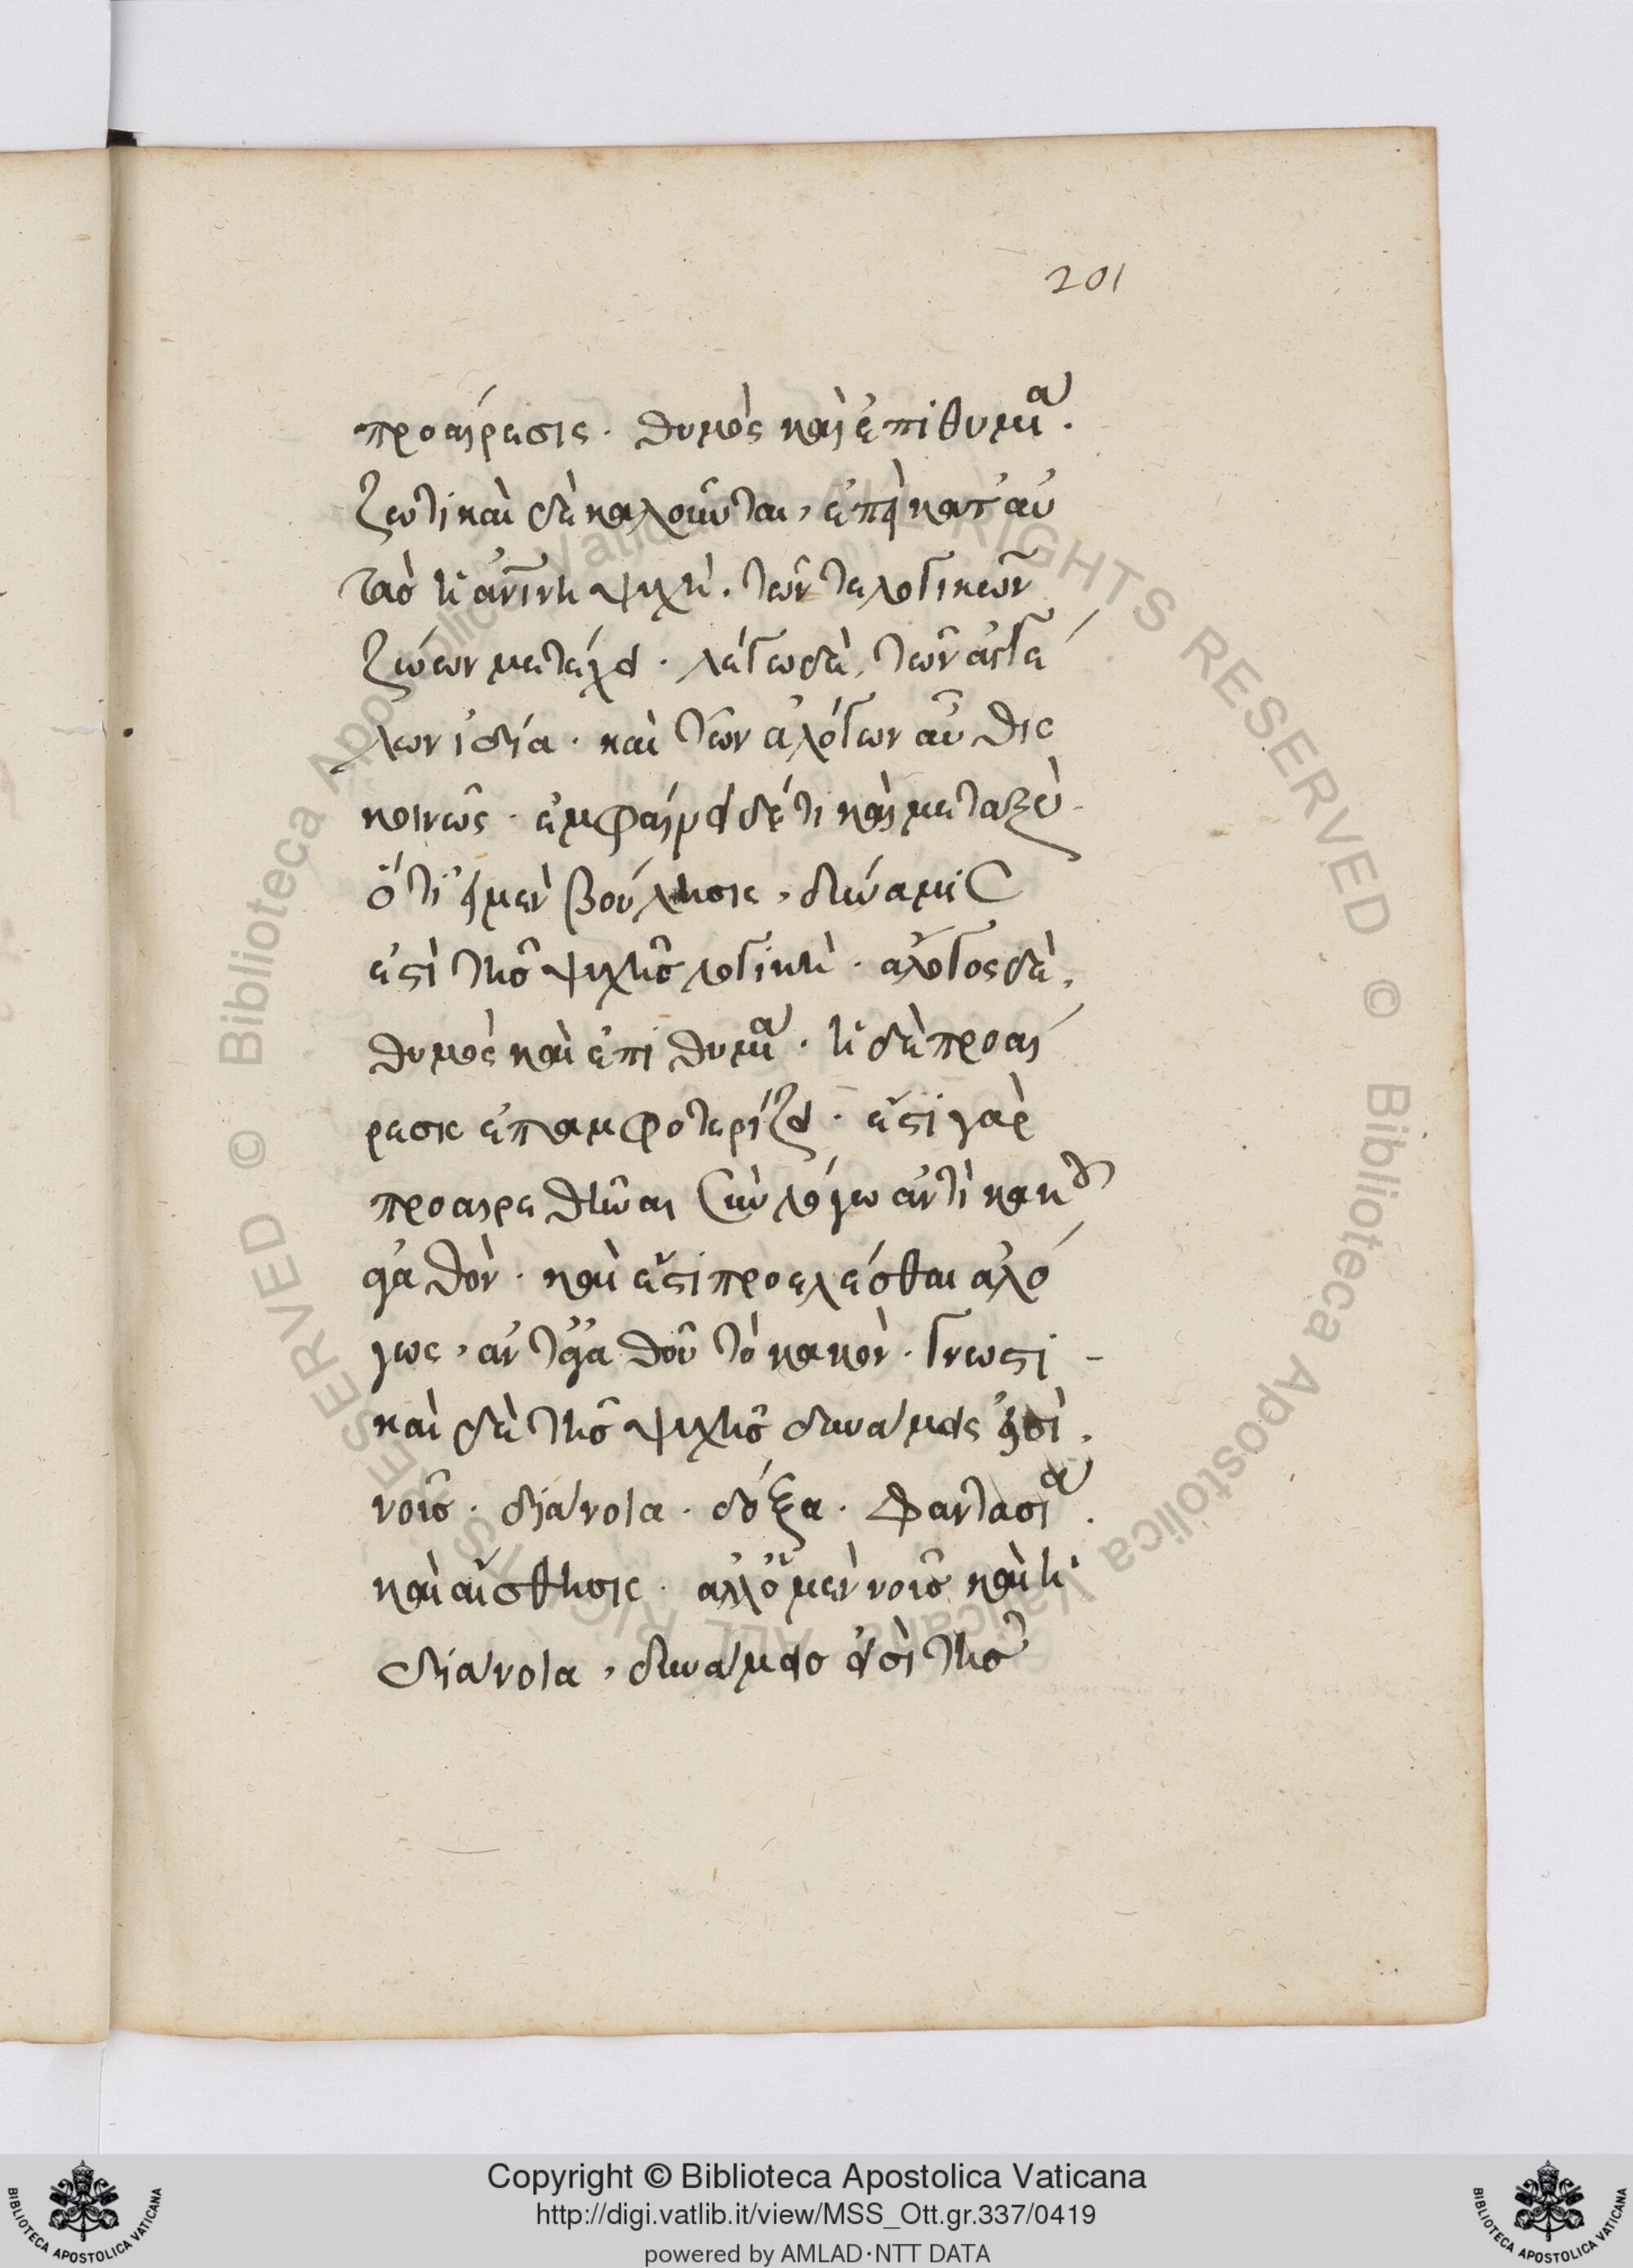 201
προαίρεσις. θυμὸς καὶ ἐπιθυμία.
ζωτικαὶ δὲ καλοῦνται, ἐπεὶ κατ' αὐ
τὰς ἡ ἀνίνη ψυχὴ. τῶν τε λογικῶν
ζώων μετέχει. λέγω δὲ, τῶν ἀγγέ
λων ἰδία. καὶ τῶν ἀλόγων αὖθις
κοινῶς. ἐμφαίρει δέ τι καὶ μεταξὺ
ὅτι ἡ μὲν βούλησις, δύναμις
ἐστὶ τῆς ψυχῆς λογικὴ. ἄλογος δὲ,
θυμὸς καὶ ἐπιθυμία. ἡ δὲ προαί
ρεσις ἐπαμφοτερίζει. ἔστι γὰρ
προαιρεθῆναι σὺν λόγω ἀντὶ κακοῦ
ἀγαθὸν. καὶ ἔστι προελέσθαι ἀλό
γως, ἀντ' ἀγαθοῦ τὸ κακὸν. γνωστι
καὶ δὲ τῆς ψυχῆς δυνάμεις εἰσὶ,
νοῦς. διάνοια. δόξα. φαντασία.
καὶ αἴσθησις. ἀλλ' ὁ μὲν νοῦς καὶ ἡ
διάνοια, δυνάμεις εἰσὶ τῆς
Copyright © Biblioteca Apostolica Vaticana
http://digi.vatlib.it/view/MSS_Ott.gr.337/0419
powered by AMLAD·NTT DATA
BIBLIOTECA APOSTOLICA VATICANA
BIBLIOTECA APOSTOLICA VATICANA
© Biblioteca Apostolica Vaticana ALL RIGHTS RESERVED © Biblioteca Apostolica Vaticana ALL RIGHTS RESERVED